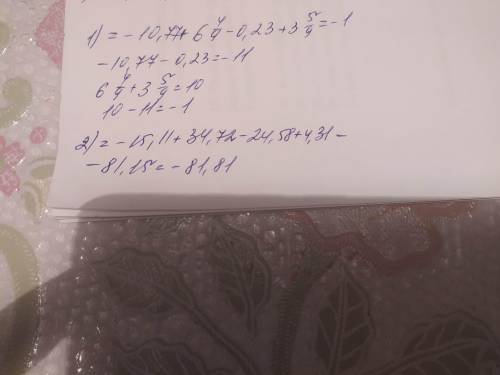 1) = - 10,77 + 6 4/9 - 0,23 + 3 5/9 = -1
-10,77 - 0,23 = -11
6 4/9 + 3 5/9 = 10
10 - 11 = -1
2) = -15,11 + 34,72 - 24,58 + 4,31 -
- 81,15 = -81,81